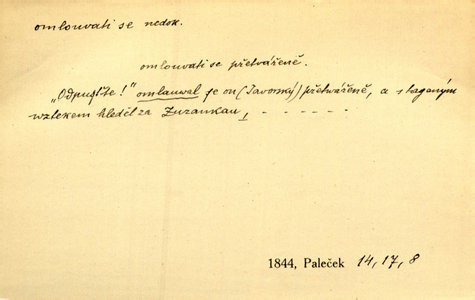 omlouvati se nedok.
omlouvati se přetvářeně.
„Odpusťte!" omlauwal se on (Javorský) přetvářeně, a s tageným
wztekem hleděl za Zuzankau, - - - - - -
1844, Paleček 14, 17, 8